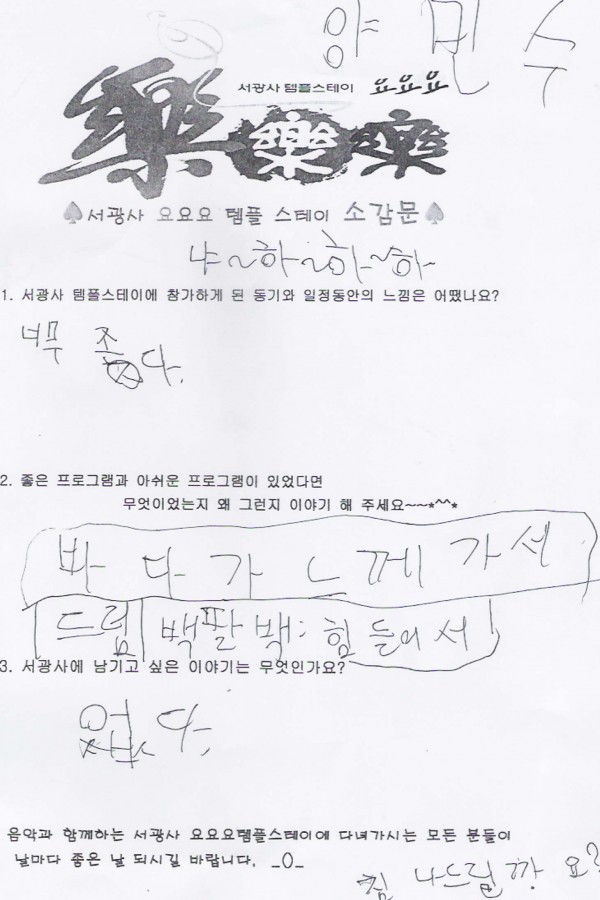 양민수
서광사 템플스테이 요요요
樂樂樂
서광사 요요요 템플 스테이 소감문
냐~하~하~하~
1. 서광사 템플스테이에 참가하게 된 동기와 일정동안의 느낌은 어땠나요?
너무 좋다.
2. 좋은 프로그램과 아쉬운 프로그램이 있었다면
무엇이었는지 왜 그런지 이야기 해 주세요~~*^^*
바다가 느께가서
드럼 백팔백: 힘들어서
3. 서광사에 남기고 싶은 이야기는 무엇인가요?
없다.
음악과 함께하는 서광사 요요요템플스테이에 다녀가시는 모든 분들이
날마다 좋은 날 되시길 바랍니다. _O_
나드릴까요?